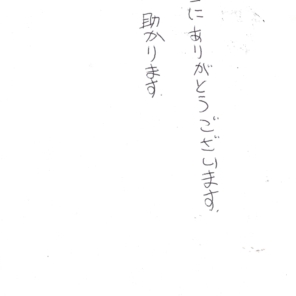 にありがとうございます.
助かります.